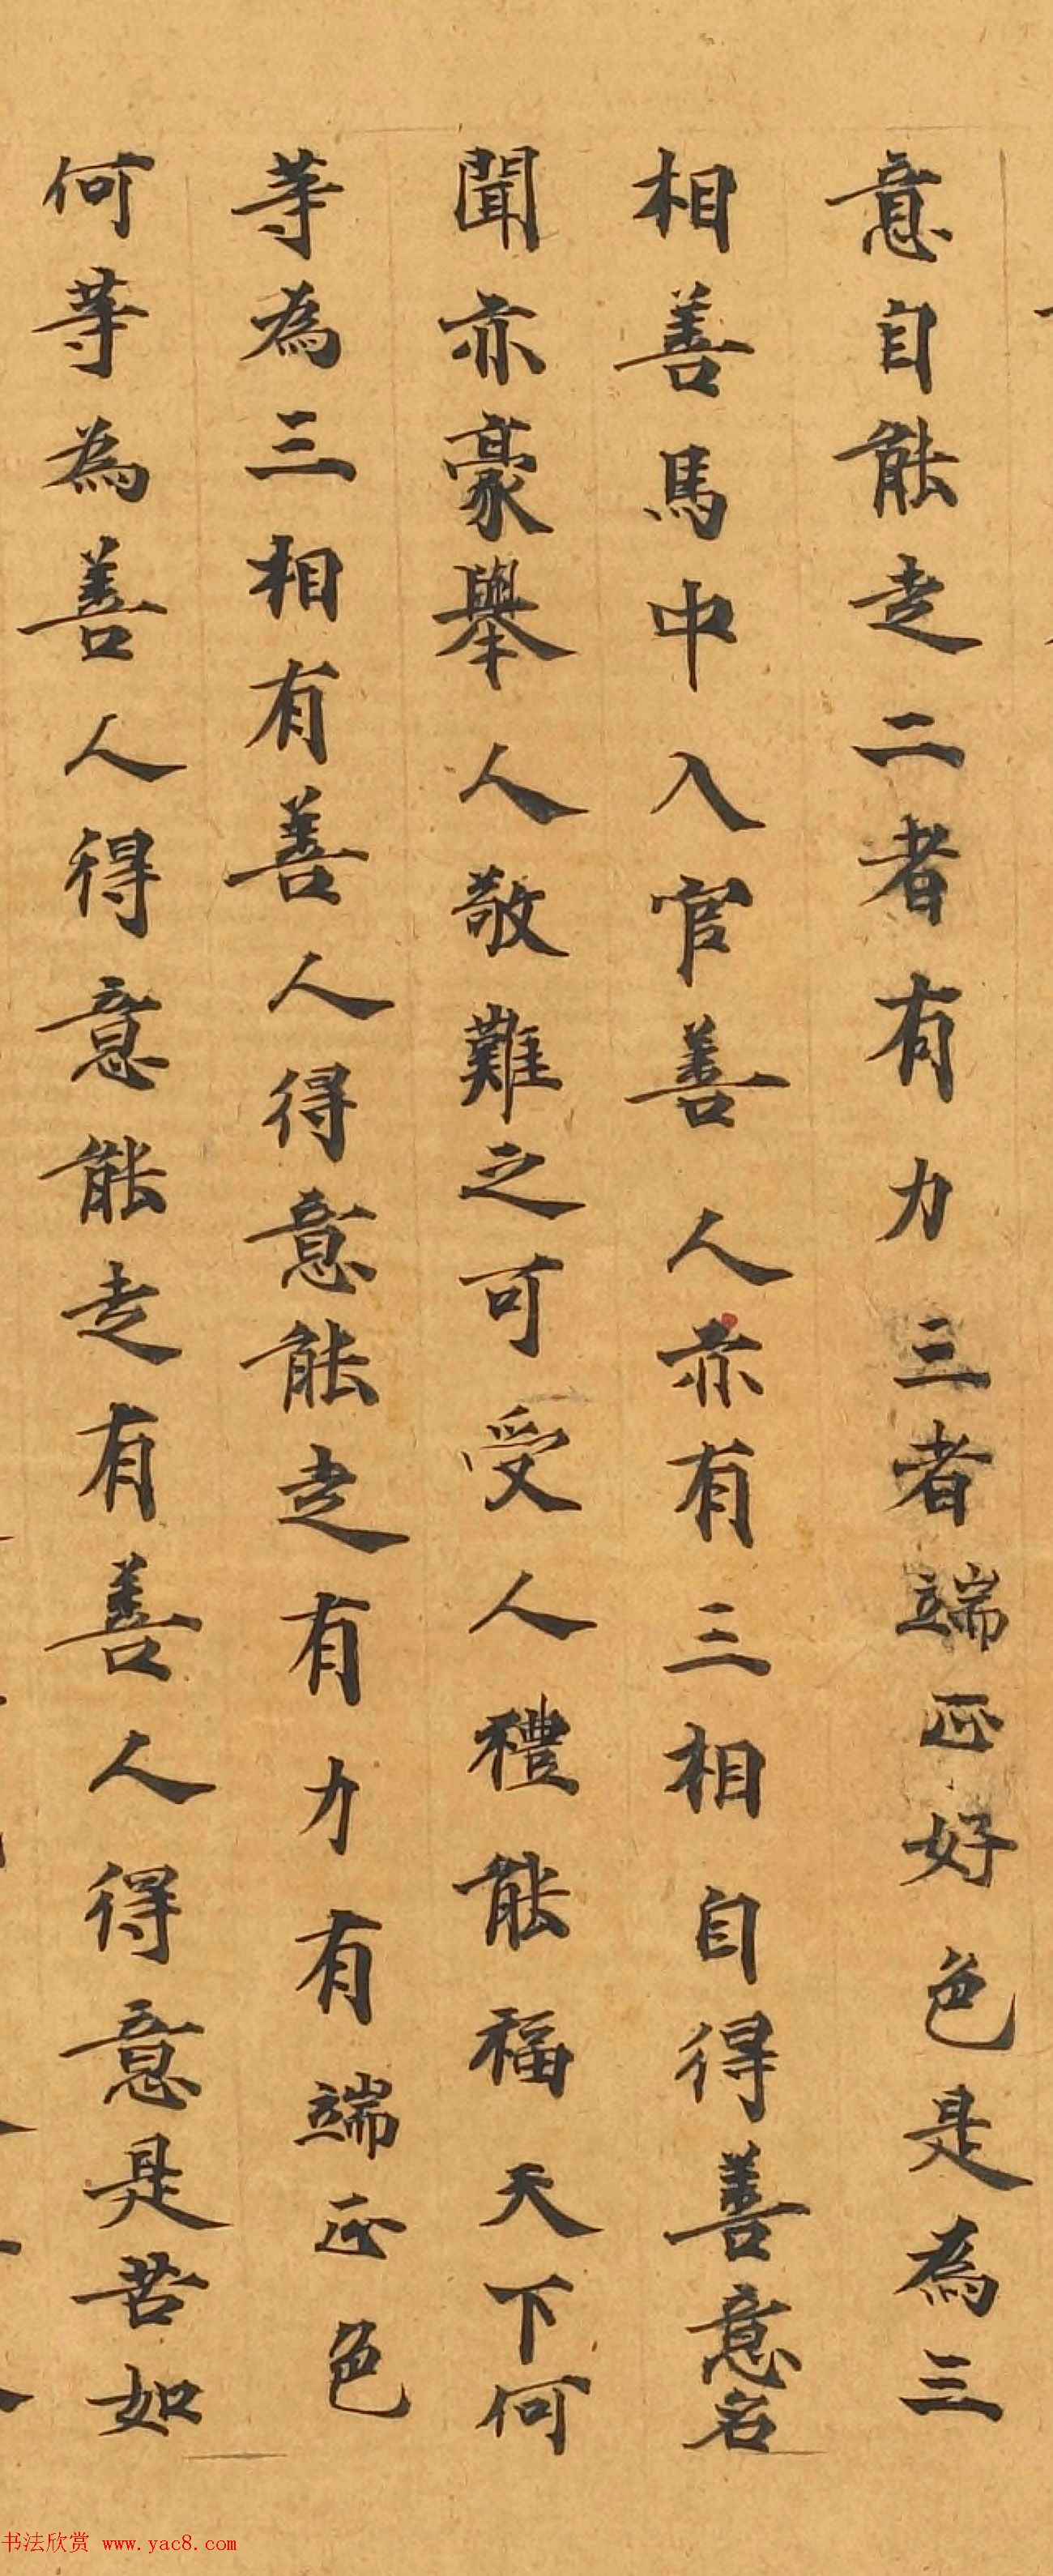 意自能走二者有力三者端正好色是為三
相善馬中入官善人亦有三相自得善意名
聞亦豪舉人敬難之可受人禮能福天下何
等為三相有善人得意能走有力有端正色
何等為善人得意能走有善人得意是苦如
书法欣赏 www.yac8.com